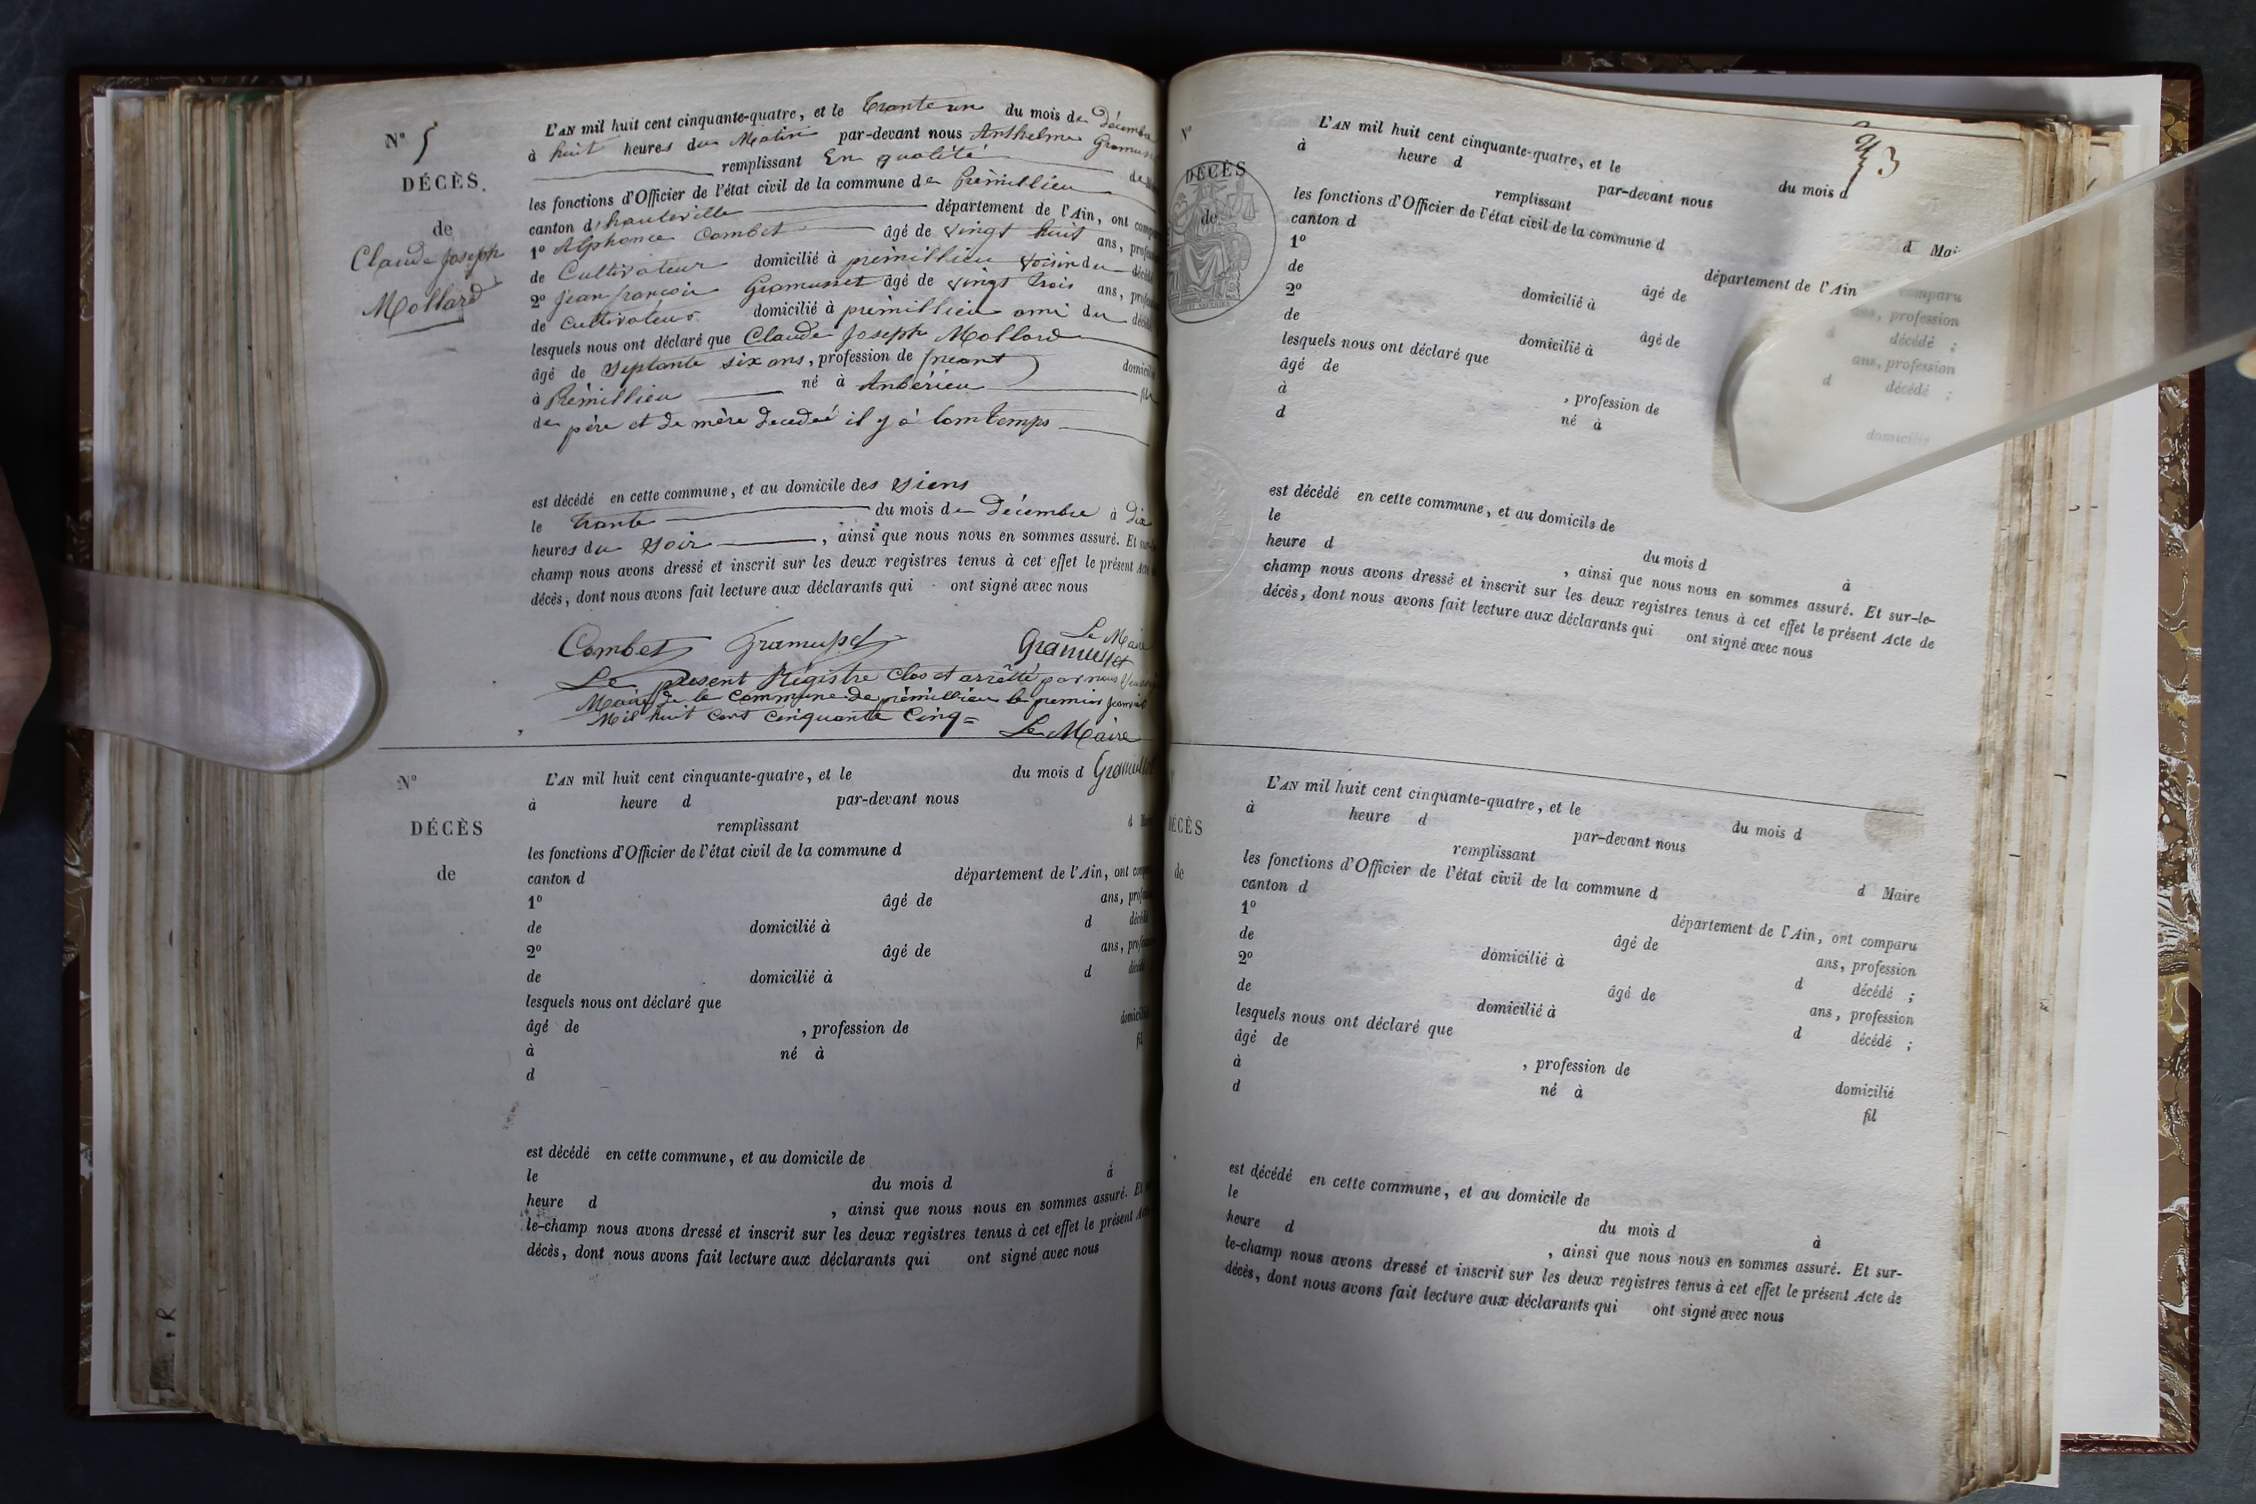 N° 5
DÉCÈS.
de
Claude Joseph
Mollard
L'AN mil huit cent cinquante-quatre, et le trante un du mois de Décembre
à huit heures du Matin par-devant nous Anthelme Gramusset
remplissant En qualité de
les fonctions d'Officier de l'état civil de la commune de Prémillieu
canton d'hauteville département de l'Ain, ont
1° Alphonce Combet âgé de vingt huit ans,
de Cultivateur domicilié à prémillieu voisin du
2° Jean françois Gramusset âgé de vingt trois ans,
de cultivateur domicilié à prémillieu ami du
lesquels nous ont déclaré que Claude Joseph Mollard
âgé de septante six ans, profession de
à Prémillieu né à Anbérieu
de père et de mère decedeé il y a lomtemps
est décédé en cette commune, et au domicile des siens
le trante du mois de Décembre à dix
heures du soir, ainsi que nous nous en sommes assuré. Et sur-le-
champ nous avons dressé et inscrit sur les deux registres tenus à cet effet le présent Acte
décès, dont nous avons fait lecture aux déclarants qui ont signé avec nous
Le Maire
Combet Gramusset Gramusset
Le present Régistre Clos et arrêtté par nous
Maire de la Commune de prémillieu le premier janvier
Mil huit Cent Cinquante Cinq =
Le Maire
Gramusset
N°
DÉCÈS
de
L'AN mil huit cent cinquante-quatre, et le du mois d
à heure d par-devant nous
remplissant d
les fonctions d'Officier de l'état civil de la commune d
canton d département de l'Ain, ont
1° âgé de ans,
de domicilié à d
2° âgé de ans,
de domicilié à d
lesquels nous ont déclaré que
âgé de , profession de
à né à fil
d
est décédé en cette commune, et au domicile de
le du mois d à
heure d , ainsi que nous nous en sommes assuré. Et
le-champ nous avons dressé et inscrit sur les deux registres tenus à cet effet le présent
décès, dont nous avons fait lecture aux déclarants qui ont signé avec nous
N°
DÉCÈS
de
L'AN mil huit cent cinquante-quatre, et le du mois d
à heure d par-devant nous
remplissant d Mai
les fonctions d'Officier de l'état civil de la commune d
canton d département de l'Ain comparu
1° âgé de ans, profession
de domicilié à d décédé ;
2° âgé de ans, profession
de domicilié à d décédé ;
lesquels nous ont déclaré que
âgé de , profession de domicilié
à né à
d
est décédé en cette commune, et au domicile de
le du mois d à
heure d , ainsi que nous nous en sommes assuré. Et sur-le-
champ nous avons dressé et inscrit sur les deux registres tenus à cet effet le présent Acte de
décès, dont nous avons fait lecture aux déclarants qui ont signé avec nous
DÉCÈS
de
L'AN mil huit cent cinquante-quatre, et le du mois d
à heure d par-devant nous
remplissant d Maire
les fonctions d'Officier de l'état civil de la commune d
canton d département de l'Ain, ont comparu
1° âgé de ans, profession
de domicilié à d décédé ;
2° âgé de ans, profession
de domicilié à d décédé ;
lesquels nous ont déclaré que
âgé de , profession de domicilié
à né à fil
d
est décédé en cette commune, et au domicile de
le du mois d à
heure d , ainsi que nous nous en sommes assuré. Et sur-
le-champ nous avons dressé et inscrit sur les deux registres tenus à cet effet le présent Acte de
décès, dont nous avons fait lecture aux déclarants qui ont signé avec nous